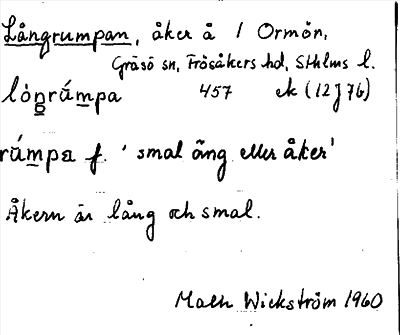 Långrumpan, åker å / Ormön,
Gräsö sn, Frösåkers hd, Sthlms l.
lóngrúmpa 457 ek (12J76)
rúmpa f. 'smal äng eller åker'
Åkern är lång och smal.
Math Wickström 1960